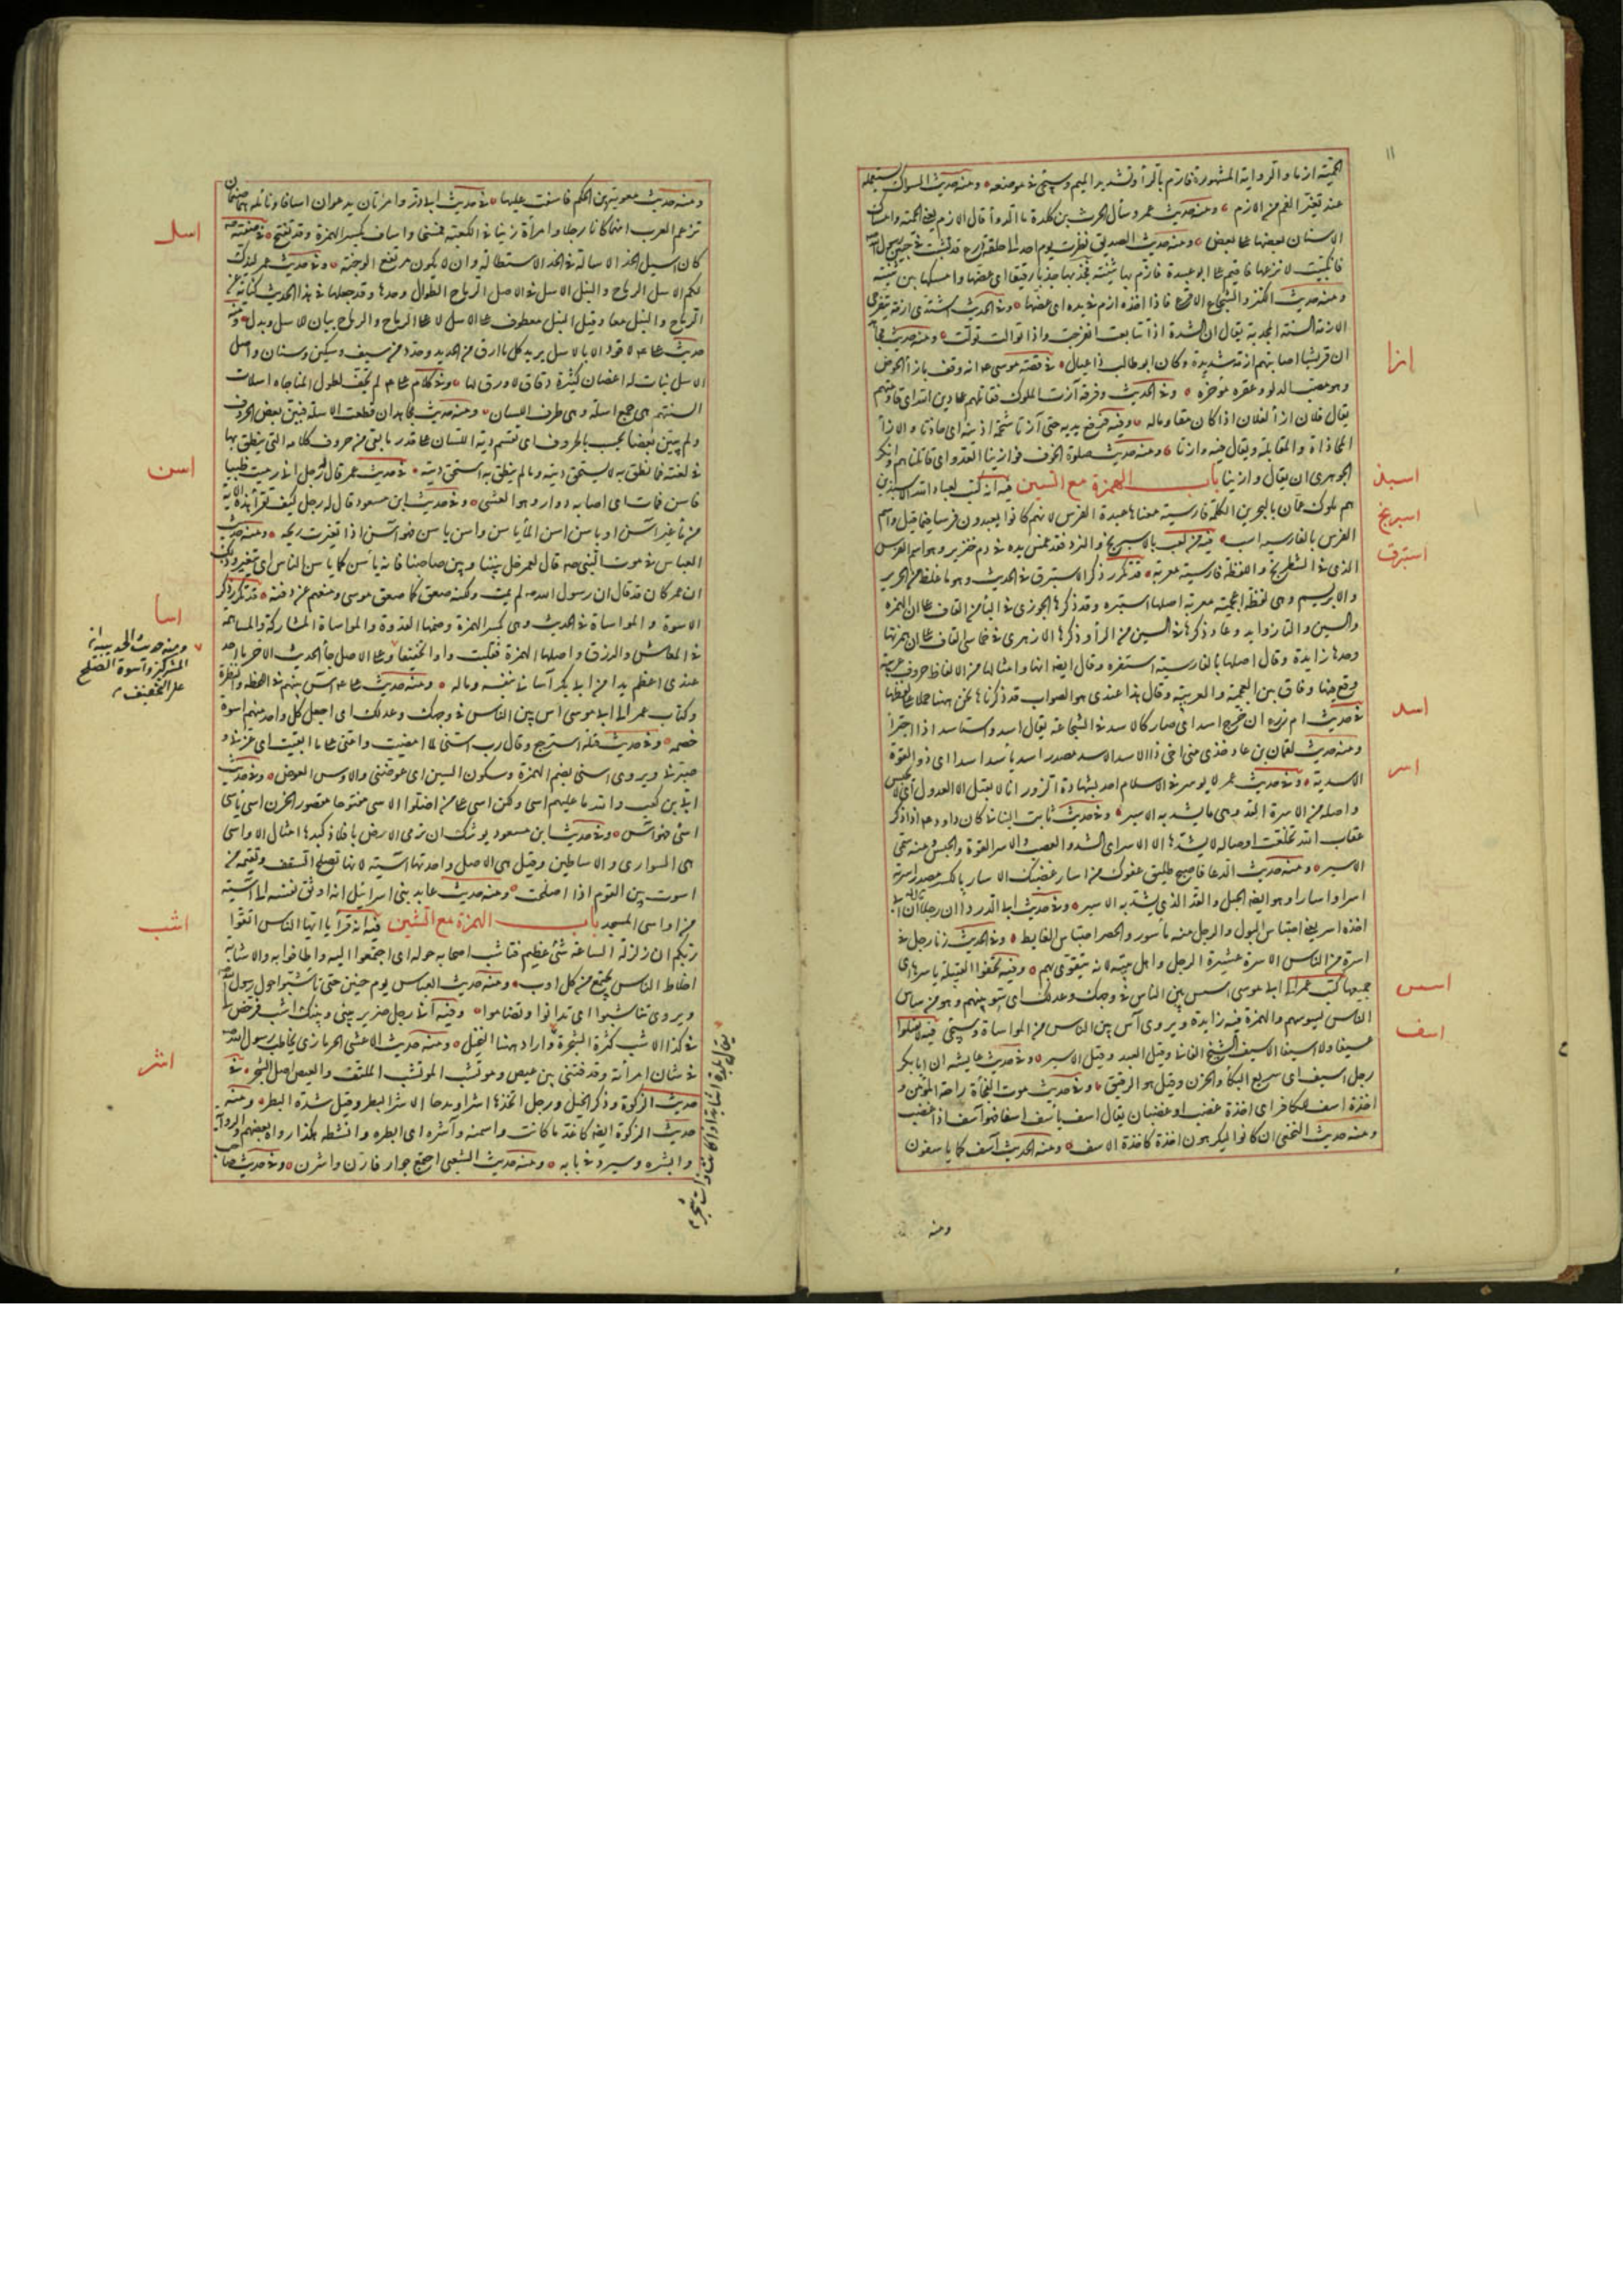 ١١
الحمية ازما والرواية المشهورة فارتم بالرأ وتشديد الميم وسيجئ في موضعه ومنه حديث السواك يستعمله
عند تغير الفم من الازم ومنه حديث عمر وسأل الحرث بن كلدة ما الدوأ قال الازم يعني الحمية وامساك
الاسنان بعضها على بعض ومنه حديث الصديق نظرت يوم احد الى حلقة درع قد نشبت في جبين رسول الله
فانكببت لانزعها فاقسم على ابو عبيدة فازم بها بثنيته فجذبها جذبا رفيقا اى عضها وامسكها بين ثنيتيه
ومنه حديث الكنز والشجاع الاقرع فاذا اخذه ازم في يده اى عضها وفي الحديث اشتدى ازمة تنفرجى
الازمة السنة المجدبة يقال ان الشدة اذا تتابعت انفرجت واذا توالت تولت ومنه حديث مجاهد
ان قريشا اصابتهم ازمة شديدة وكان ابو طالب ذا عيال في قصة موسى انه وقف بازأ الحوض
ازا
وهو مصب الدلو وعقره مؤخره وفي الحديث وفرقة آزت الملوك فقاتلهم على دين الله اى قاومتهم
يقال فلان ازأ لفلان اذا كان مقاوما له وفيه فرفع يديه حتى آزتا شحمة اذنيه اى حاذتا والازأ
المحاذاة والمقابلة ويقال فيه وازتا ومنه حديث صلوة الخوف فوازينا العدو اى قابلناهم وانكر
الجوهرى ان يقال وازينا باب الهمزة مع السين فيه انه كتب لعباد الله الاسبذين
اسبذ
هم ملوك عمان بالبحرين الكلمة فارسية معناها عبدة الفرس لانهم كانوا يعبدون فرسا فيما قيل واسم
الفرس بالفارسية اسب فيه من لعب بالاسبرنج والنرد فقد غمس يده في دم خنزير وهو اسم الفرس
اسبرنج
الذى في الشطرنج واللفظة فارسية معربة قد تكرر ذكر الاستبرق في الحديث وهو ما غلظ من الحرير
استبرق
والابريسم وهى لفظة اعجمية معربة اصلها استبره وقد ذكرها الجوهرى في البأ من القاف على ان الهمزة
والسين والتا زوايد وعاد ذكرها في السين من الرأ وذكرها الازهرى في خماسى القاف على ان همزتها
وحدها زايدة وقال اصلها بالفارسية استفره وقال ايضا انها وامثالها من الالفاظ حروف عربية
وقع فيها وفاق بين العجمية والعربية وقال هذا عندى هو الصواب قد ذكرناها نحن ههنا حملا على لفظها
في حديث ام زرع ان خرج اسد اى صار كالاسد في الشجاعة يقال اسد واستاسد اذا اجترأ
اسد
ومنه حديث لقمان بن عاد خذى منى اخى ذا الاسد الاسد مصدر اسد ياسد اسدا اى ذو القوة
الاسدية وفي حديث عمر لا يوسر في الاسلام احد بشهادة الزور انا لا نقبل الا العدول اى لا يحبس
اسر
واصله من الاسرة القد وهى ما يشد به الاسير وفي حديث ثابت البنانى كان داود عم اذا ذكر
عقاب الله تخلعت اوصاله لا يشدها الا الاسر اى الشد والعصب والاسر القوة والحبس ومنه سمى
الاسير ومنه حديث الدعا فاصبح طليق عفوك من اسار غضبك الاسار بالكسر مصدر اسرته
اسرا واسارا وهو ايضا الحبل والقد الذى يشد به الاسير وفي حديث ابى الدردا ان رجلا قال له ان ابى
اخذه اسر يعنى احتباس البول والرجل منه مأسور والحصر احتباس الغايط وفي الحديث زنا رجل في
اسرة من الناس الاسرة عشيرة الرجل واهل بيته لانه يتقوى بهم وفيه تجفو القبيلة باسرها اى
جميعها كتب عمر الى ابى موسى اسس بين الناس في وجهك وعدلك اى سو بينهم وهو من ساس
اسس
الناس يسوسهم والهمزة فيه زايدة ويروى آس بين الناس من المواساة وسيجئ فيه لا تقتلوا
اسف
عسيفا ولا اسيفا الاسيف الشيخ الفانى وقيل العبد وقيل الاسير وفي حديث عايشة ان ابا بكر
رجل اسيف اى سريع البكأ والحزن وقيل هو الرقيق وفي حديث موت الفجأة راحة للمؤمن و
اخذة اسف للكافر اى اخذة غضب او غضبان يقال اسف يأسف اسفا فهو آسف اذا غضب
ومنه حديث النخعى ان كانوا ليكرهون اخذة كاخذة الاسف ومنه الحديث آسف كما ياسفون
ومنه
ومنه حديث معوية بن الحكم فاسفت عليها في حديث ابى ذر وامرأتان يدعوان اسافا ونائلة هما صنمان
تزعم العرب انهما كانا رجلا وامرأة زنيا في الكعبة فمسخا واساف بكسر الهمزة وقد تفتح في صفته صم
اسل
كان اسيل الخد الاسالة في الخد الاستطالة وان لا يكون مرتفع الوجنة وفي حديث عمر ليذك
لكم الاسل الرماح والنبل الاسل في الاصل الرماح الطوال وحدها وقد جعلها في هذا الحديث كناية عن
الرماح والنبل معا وقيل النبل معطوف على الاسل لا على الرماح والرماح بيان للاسل وبدل ومنه
حديث على لا قود الا بالاسل يريد كل ما ارق من الحديد وحدد من سيف وسكين وسنان واصل
الاسل نبات له اغصان كثيرة دقاق لا ورق لها وفي كلام على لم تجف لطول المناجاة اسلات
السنتهم هى جمع اسلة وهى طرف اللسان ومنه حديث مجاهد ان قطعت الاسلة فبين بعض الحروف
ولم يبين بعضا يحسب بالحروف اى تقسم دية اللسان على قدر ما بقى من حروف كلامه التى ينطق بها
في لغته فما نطق به لا يستحق ديته وما لم ينطق به استحق ديته في حديث عمر قال له رجل انى رميت ظبيا
اسن
فاسن فمات اى اصابه دوار وهو الغشى وفي حديث ابن مسعود قال له رجل كيف تقرأ هذه الآية
من مأ غير آسن او ياسن اسن المأ ياسن واسن ياسن فهو آسن اذا تغيرت ريحه ومنه حديث
العباس في موت النبى صم قال لعمر خل بيننا وبين صاحبنا فانه يأسن كما ياسن الناس اى يتغير وذلك
ان عمر كان قد قال ان رسول الله صم لم يمت ولكنه صعق كما صعق موسى ومنعهم عن دفنه قد تكرر ذكر
اسا
الاسوة والمواساة في الحديث وهى بكسر الهمزة وضمها القدوة والمواساة المشاركة والمساهمة
ومنه حديث الحديبية ان
المشركين واسونا الصلح
على التخفيف
في المعاش والرزق واصلها الهمزة فقلبت واوا تخفيفا وعلى الاصل جأ الحديث الاخر ما احد
عندى اعظم يدا من ابى بكر آسانى بنفسه وماله ومنه حديث على آس بينهم في اللحظة والنظرة
وكتاب عمر الى ابى موسى اس بين الناس في وجهك وعدلك اى اجعل كل واحد منهم اسوة
خصمه وفي حديث قيلة استرجع وقال رب اسنى لما امضيت واعنى على ما ابقيت اى عزنى و
صبرنى ويروى اسنى بضم الهمزة وسكون السين اى عوضنى والاوس العوض وفي حديث
ابى بن كعب والله ما عليهم اسى ولكن اسى على من اضلوا الاسى مفتوحا مقصور الحزن اسى ياسى
اسى فهو آس وفي حديث ابن مسعود يوشك ان ترمى الارض بافلاذ كبدها امثال الاواسى
هى السوارى والاساطين وقيل هى الاصل واحدتها آسية لانها تصلح السقف وتقيمه من
اسوت بين القوم اذا اصلحت ومنه حديث عابد بنى اسرائيل انه اوثق نفسه الى آسية
من اواسى المسجد باب الهمزة مع الشين فيه انه قرأ يا ايها الناس اتقوا
اشب
ربكم ان زلزلة الساعة شئ عظيم فتاشب اصحابه حوله اى اجتمعوا اليه واطافوا به والاشابة
اخلاط الناس تجتمع من كل اوب ومنه حديث العباس يوم حنين حتى تأشبوا حول رسول الله
ويروى تناشبوا اى تدانوا وتضاموا وفيه انى رجل ضرير بينى وبينك اشب فرخص لى
في كذا الاشب كثرة الشجرة واراد ههنا النخيل ومنه حديث الاعشى الحرمازى يخاطب رسول الله
في شان امرأته وقدفتنى بين عيص وموتشب الموتشب الملتف والعيص اصل الشجر في
اشر
حديث الزكوة وذكر الخيل ورجل اتخذها اشرا وبذخا الاشر البطر وقيل شدة البطر ومنه
حديث الزكوة ايضا كاغذ ما كانت واسمنه وآشره اى ابطره وانشطه هكذا رواه بعضهم والرواية
وابشره وسيرد في بابه ومنه حديث الشعبى اجتمع جوار فارن واشرن وفي حديث صاحب
يقال بلدة اشبة اذا كانت ذات شجر